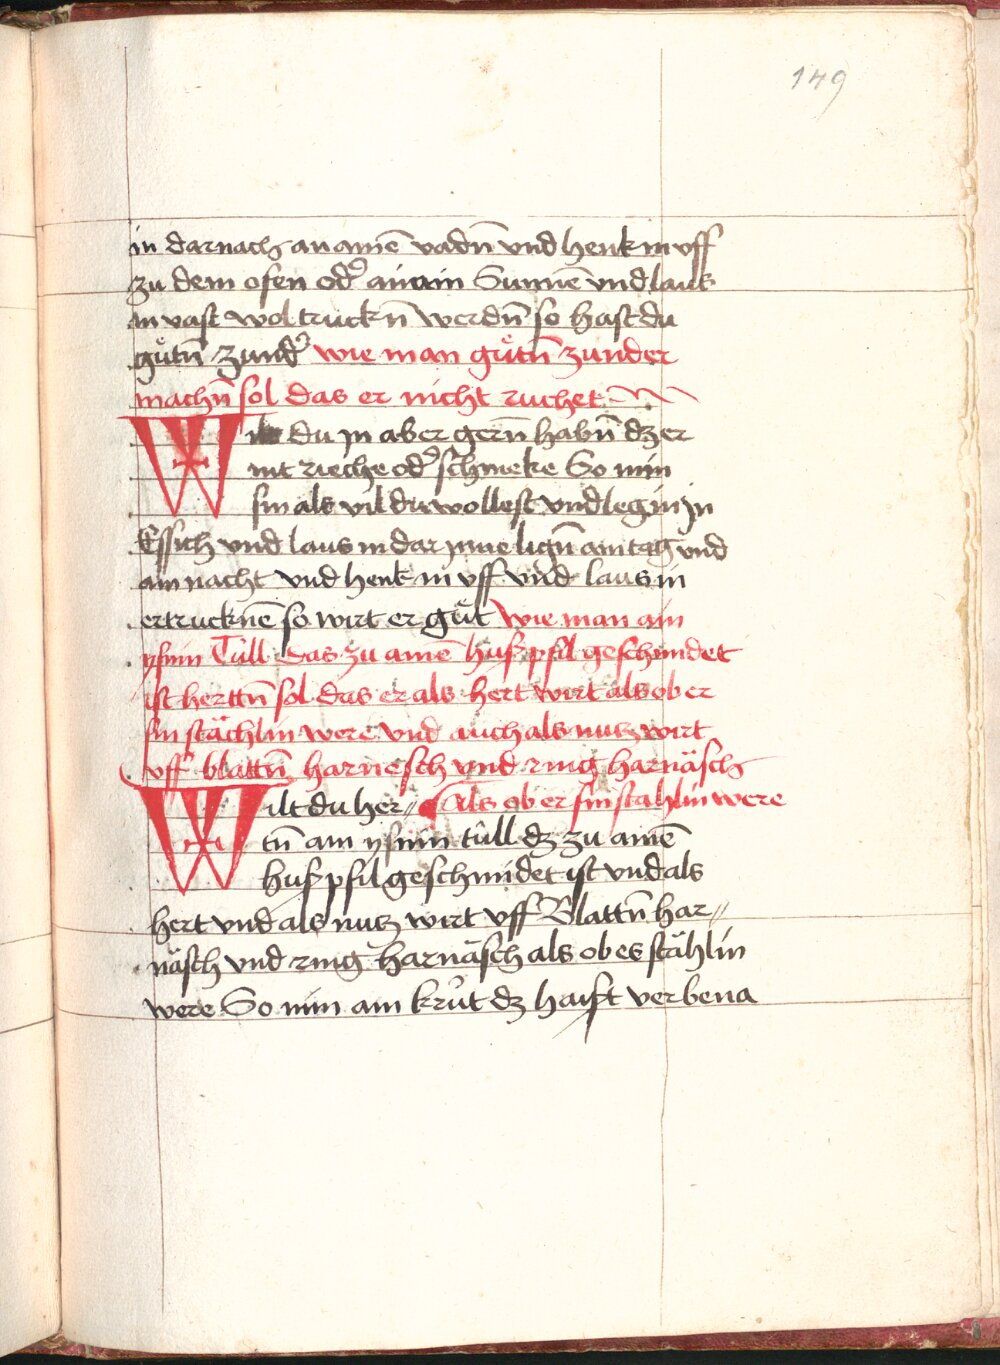 149
in darnach an ainē vadñ vnd henk in vff
zu dem ofen odˀ an ain Sunnē vnd laus
in vast wol trucknˉ werdñ so hast du
gůtñ zundˀ wie man gůtñ zunder
machñ sol das er nicht ruchet
Wilt du jn aber gern̄ habñ dz er
nit rieche odˀ schmeke So nim
sin als vil du wollest vnd leg in jn
Essich vnd laus in dar jnne ligñ ain tag vnd
ain nacht vnd henk in vff vnd laus in
ertrucknē so wirt er gůt wie man ain
ysnin Tüll das zu ainē husz pfil geschmidet
ist herttñ sol das er als hert wirt als ob er
sin stächlin were vnd auch als nutz wirt
vff blattñ harnesch vnd ring harnäsch
Wilt du her〃 Als ob er sin stahlin were
tñ ain ysnin tüll dz zu ainē
husz pfil geschmidet ist vnd als
hert vnd als nutz wirt vff Blattñ har〃
näsch vnd ring harnäsch als ob es stählin
were So nim ain krůt dz haist verbena